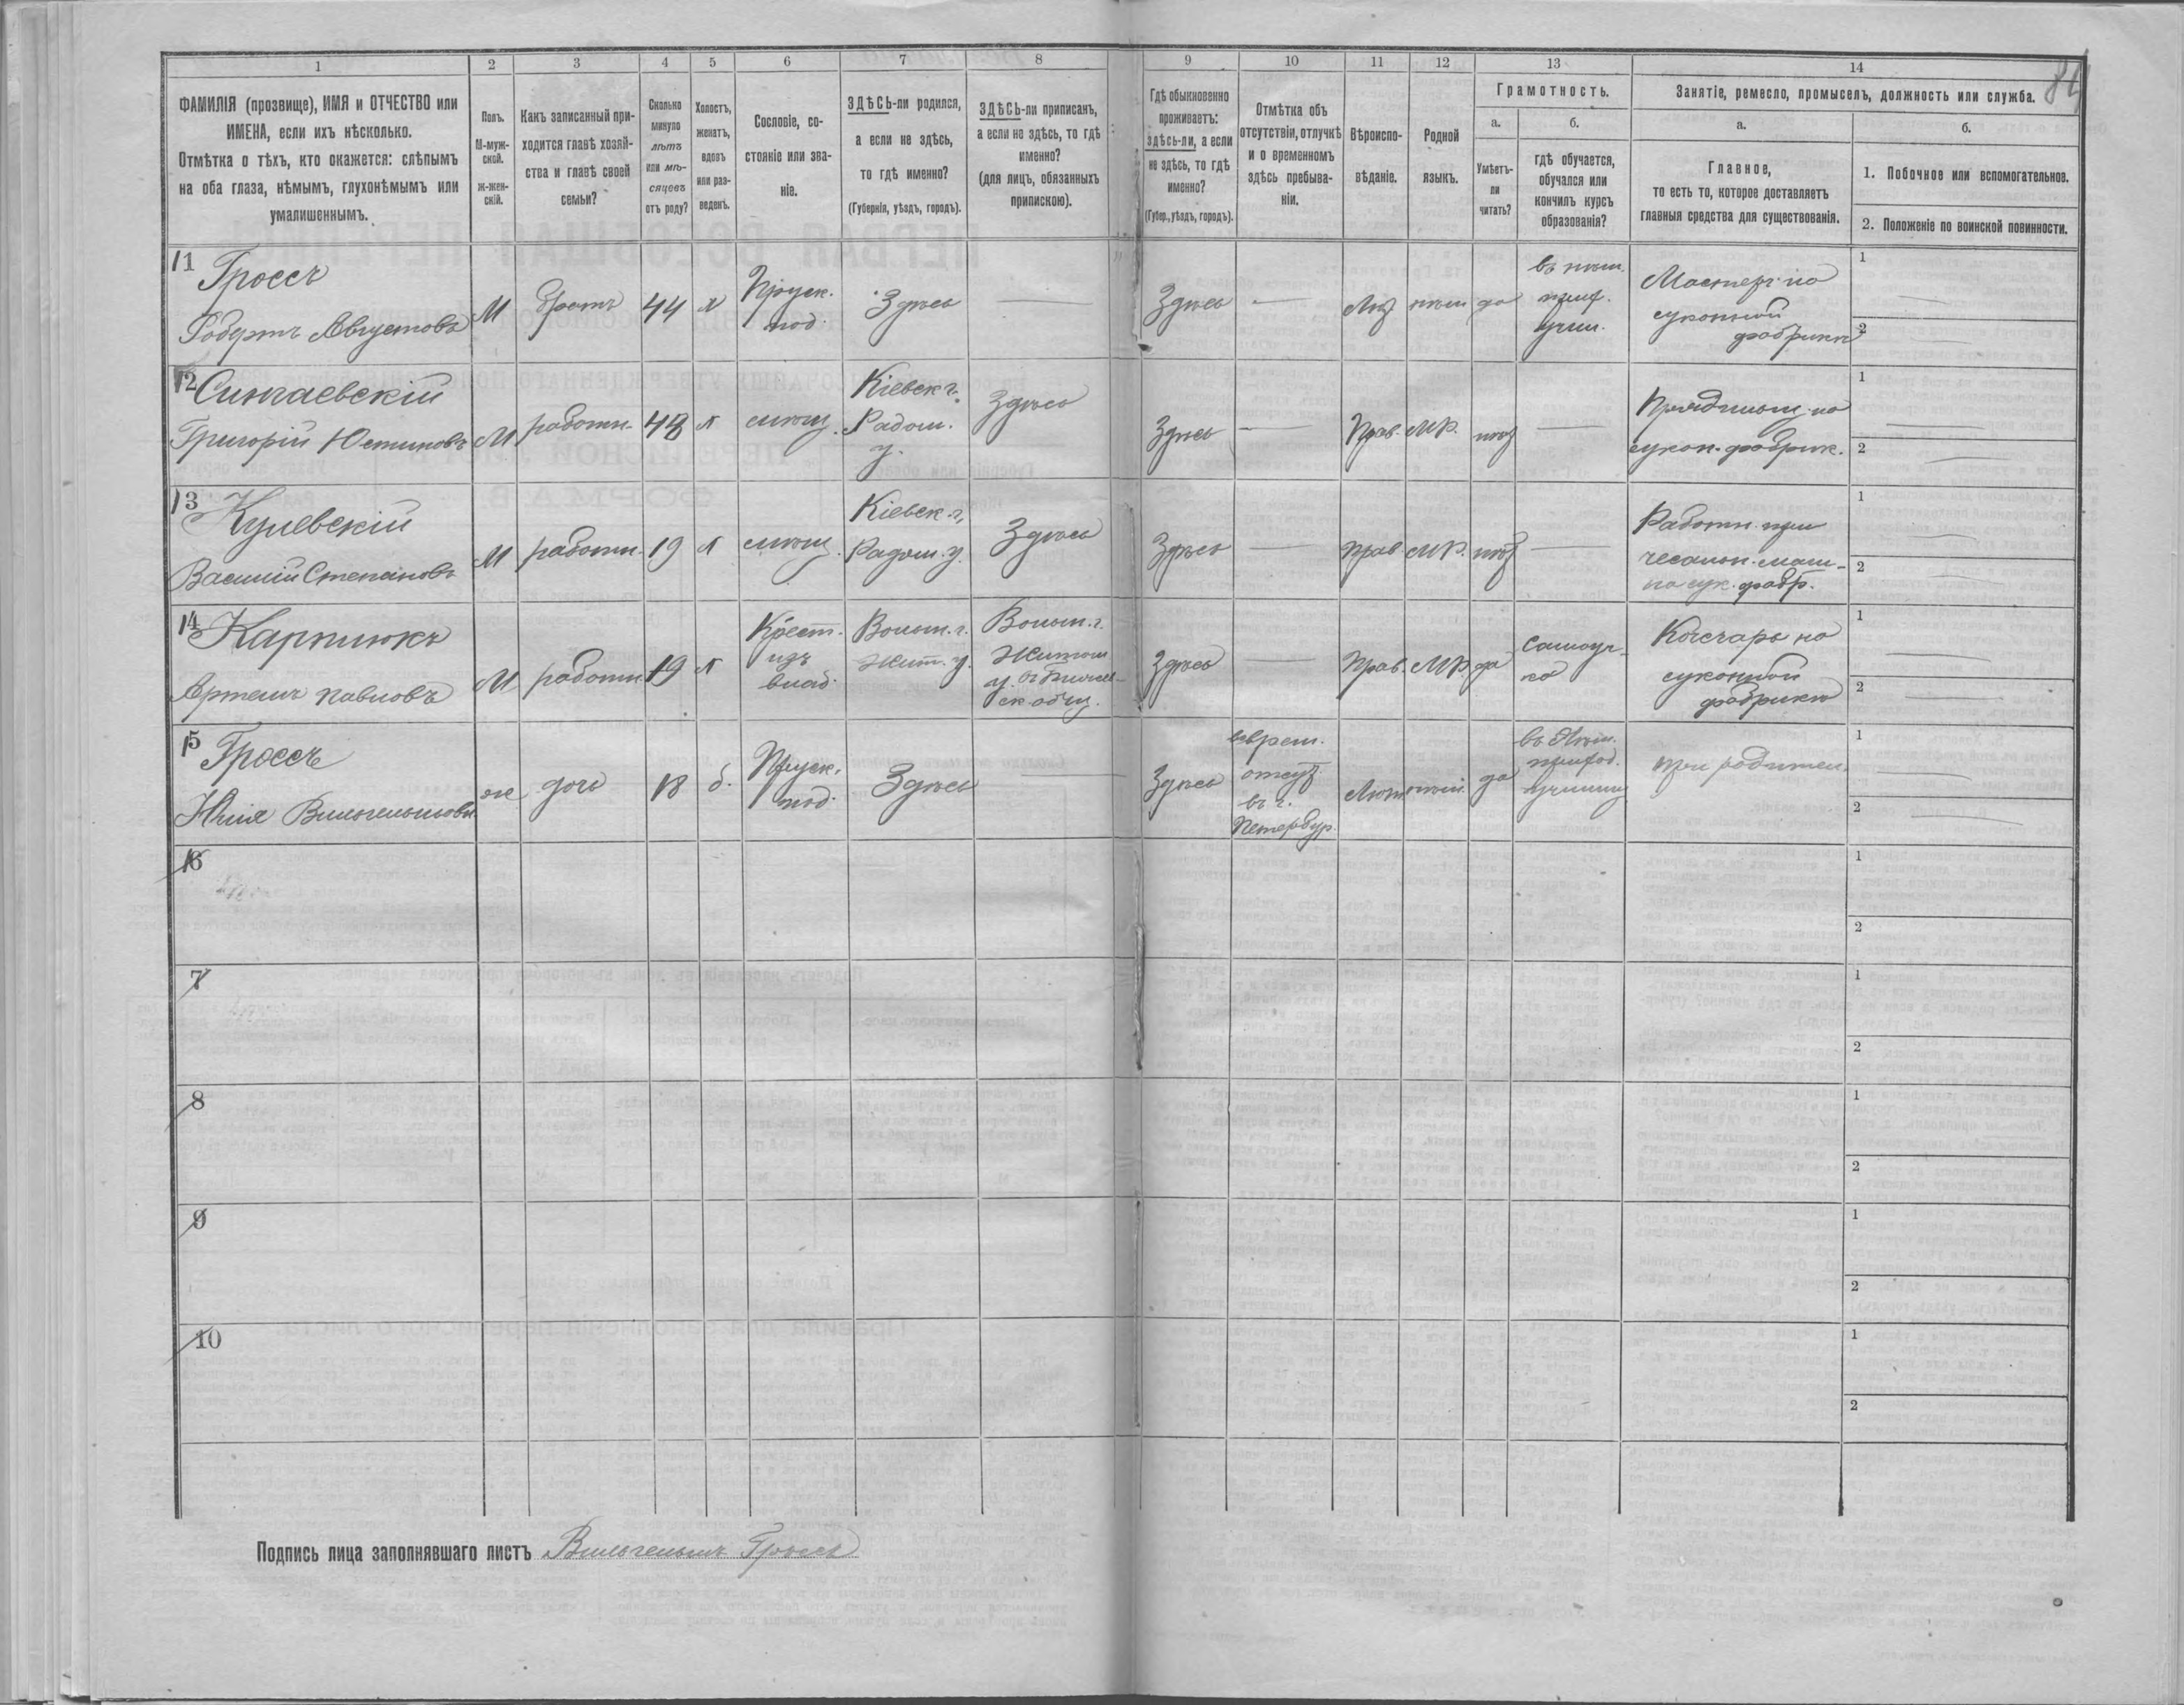 84
1 2 3 4 5 6 7 8 9 10 11 12 13 14
ФАМИЛІЯ (прозвище), ИМЯ и ОТЧЕСТВО или
ИМЕНА, если ихъ нѣсколько.
Отмѣтка о тѣхъ, кто окажется: слѣпымъ
на оба глаза, нѣмымъ, глухонѣмымъ или
умалишеннымъ.
Полъ.
М-муж-
ской.
ж-жен-
скій.
Какъ записанный при-
ходится главѣ хозяй-
ства и главѣ своей
семьи?
Сколько
минуло
лѣтъ
или мѣ-
сяцевъ
отъ роду?
Холостъ,
женатъ,
вдовъ
или раз-
веденъ.
Сословіе, со-
стояніе или зва-
ніе.
ЗДѢСЬ-ли родился,
а если не здѣсь,
то гдѣ именно?
(Губернія, уѣздъ, городъ).
ЗДѢСЬ-ли приписанъ,
а если не здѣсь, то гдѣ
именно?
(для лицъ, обязанныхъ
припискою).
Гдѣ обыкновенно
проживаетъ:
здѣсь-ли, а если
не здѣсь, то гдѣ
именно?
(Губер., уѣздъ, городъ).
Отмѣтка объ
отсутствіи, отлучкѣ
и о временномъ
здѣсь пребыва-
ніи.
Вѣроиспо-
вѣданіе.
Родной
языкъ.
Грамотность.
а.
Умѣетъ-
ли
читать?
б.
гдѣ обучается,
обучался или
кончилъ курсъ
образованія?
Занятіе, ремесло, промыселъ, должность или служба.
а.
Главное,
то есть то, которое доставляетъ
главныя средства для существованія.
б.
1. Побочное или вспомогательное.
2. Положеніе по воинской повинности.
11
Гроссъ
Робертъ Августовъ
М
братъ
44
х
Прусск.
под.
Здѣсь
Здѣсь
нѣм
да
въ нѣм.
учил.
Мастеръ на
суконной
фабрикѣ
1
2
12
Сингаевскій
Григорій Юстиновъ
М
работн.
48
Кіевск г.
Радом.
у.
Здѣсь
Здѣсь
Прав.
МР.
сукон. фабрик.
1
2
13
Кулевскій
Василій Степановъ
М
работн.
19
Кіевск. г.,
Радом. у.
Здѣсь
Здѣсь
Прав
МР.
Работн. при
чесальн. маш-
на сук. фабр.
1
2
14
Карпиюкъ
Артемъ Павловъ
М
работн.
19
Крест.
изъ
влад.
Волын. г.
Жит. у.
Волын. г.
Житом
Здѣсь
Прав.
МР.
да
самоуч-
ка
Кочегаръ на
суконной
фабрикѣ
1
2
15
Гроссъ
Юлія Вильгельмовн.
ж
дочь
18
Прусск.
под.
Здѣсь
Здѣсь
въ врем.
отсут
въ г.
Петербур
Лют
нѣм.
да
въ нѣм.
приход.
училищ
при родител.
1
2
16
1
2
7
1
2
8
1
2
9
1
2
10
1
2
Подпись лица заполнявшаго листъ Вильгельмъ Гроссъ